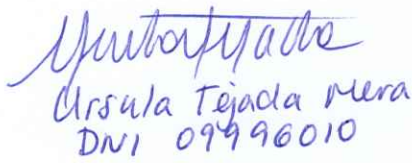 Ursula Tejada Mera
DNI 09996010